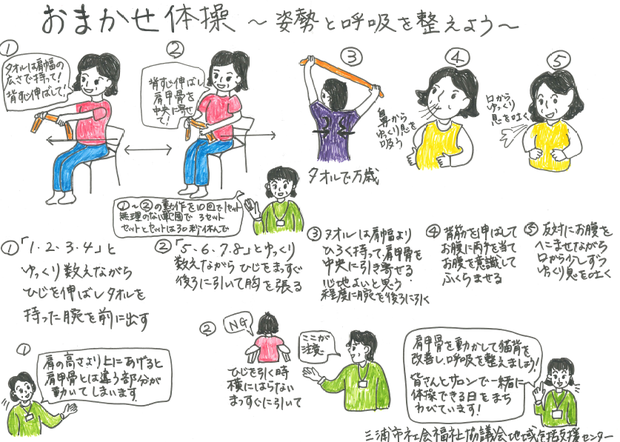 おまかせ体操 ～姿勢と呼吸を整えよう～
①
タオルは肩幅の
広さで持って!
背すじ伸ばして!
②
背すじ伸ばし
肩甲骨を
中央に寄せて!
③
タオルで万歳
④
鼻から
ゆっくり息を
吸う
⑤
口から
ゆっくり
息を吐く
①～②の動作を10回で1セット
無理のない範囲で 3セット
セットとセットは30秒休んで
①「1・2・3・4」と
ゆっくり数えながら
ひじを伸ばしタオルを
持った腕を前に出す
②「5・6・7・8」とゆっくり
数えながら ひじをまっすぐ
後ろに引いて胸を張る
③タオルは肩幅より
ひろく持って肩甲骨を
中央に引き寄せる
心地よいと思う
程度に腕を後ろに引く
④背筋を伸ばして
お腹に両手を当て
お腹を意識して
ふくらませる
⑤反対にお腹を
へこませながら
口から少しずつ
ゆっくり息を吐く
①
肩の高さより上にあげると
肩甲骨とは違う部分が
動いてしまいます
②
NG
ひじを引く時
横にはらない
まっすぐに引いて
ココが
注意
肩甲骨を動かして猫背を
改善し、呼吸を整えましょう!
皆さんとサロンで一緒に
体操できる日をまち
わびています!
三浦市社会福祉協議会地域包括支援センター